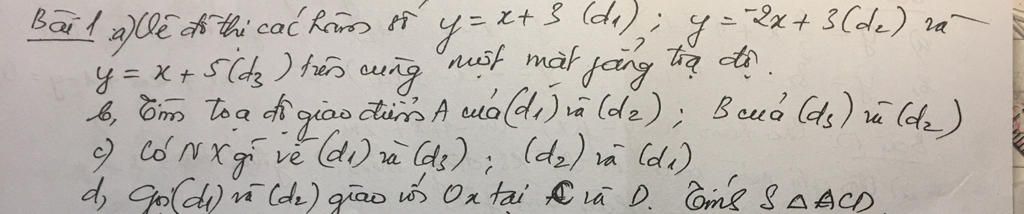 Bài 1 a) Vẽ đồ thị các hàm số y = x + 3 (d₁) ; y = -2x + 3 (d₂) và
y = x + 5 (d₃) trên cùng một mặt phẳng tọa độ.
b, Tìm toạ độ giao điểm A của (d₁) và (d₂) ; B của (d₃) và (d₂)
c) Có NX gì về (d₁) và (d₃) ; (d₂) và (d₁)
d, Gọi (d₁) và (d₂) giao với Ox tại C và D. Tính S △ ACD